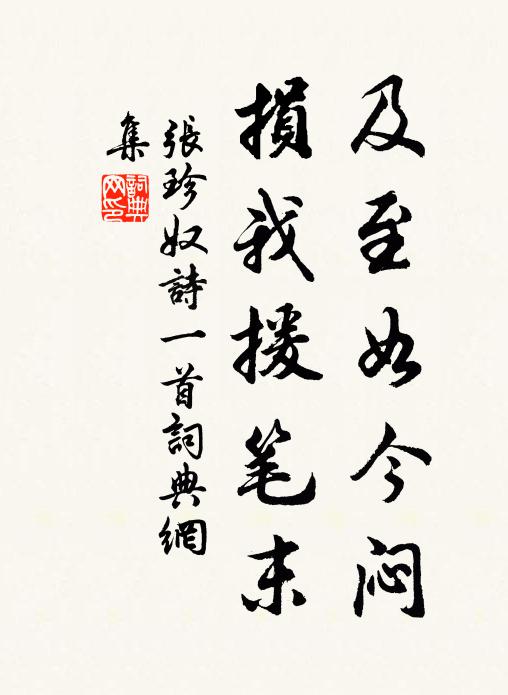 及至如今闷
損我援笔末
張珍奴詩一首詞典網
集
詞典网印